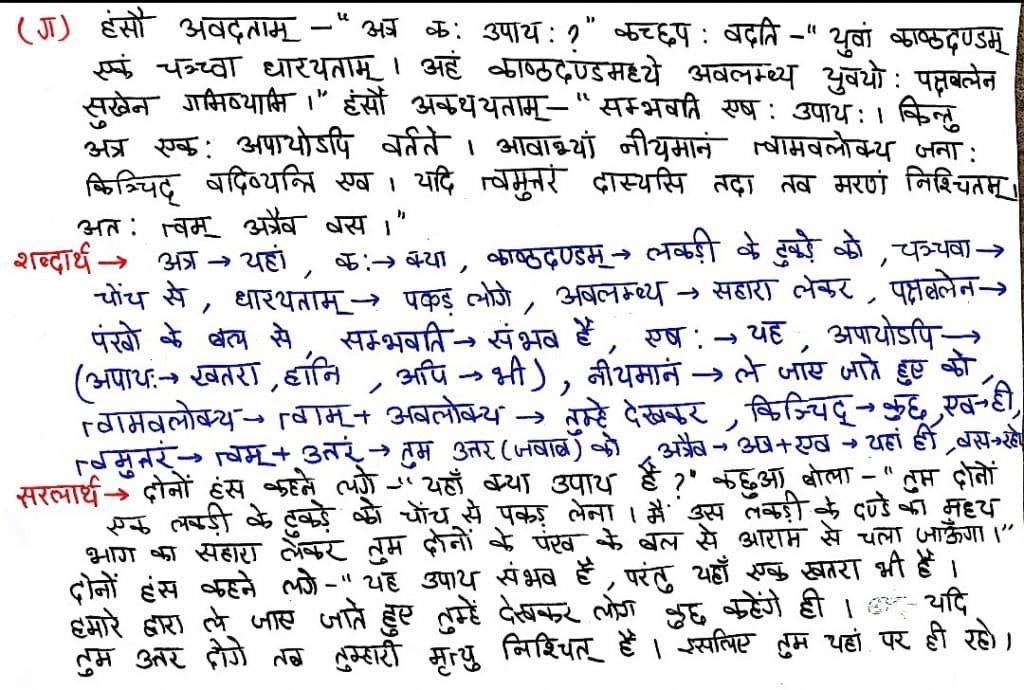 (ग) हंसौ अवदताम् -“ अत्र क: उपाय: ?” कच्छप : वदति -“ युवां काष्ठदण्डम्
एकं चञ्च्वा धारयताम् । अहं काष्ठदण्डमध्ये अवलम्ब्य युवयो : पक्षबलेन
सुखेन गमिष्यामि ।” हंसौ अकथयताम् -“ सम्भवति एष : उपाय : । किन्तु
अत्र एक: अपायोऽपि वर्तते । आवाभ्यां नीयमानं त्वामवलोक्य जना :
किञ्चिद् वदिष्यन्ति एव । यदि त्वमुत्तरं दास्यसि तदा तव मरणं निश्चितम् ।
अत : त्वम् अत्रैव वस ।”
शब्दार्थ → अत्र → यहां , क: → क्या , काष्ठदण्डम् → लकड़ी के टुकड़े को , चञ्चवा →
चोंच से , धारयताम् → पकड़ लोगे , अवलम्ब्य → सहारा लेकर , पक्षबलेन →
पंखो के बल से , सम्भवति → संभव है , एष : → यह , अपायोऽपि →
(अपाय: → खतरा , हानि , अपि → भी) , नीयमानं → ले जाए जाते हुए को ,
त्वामवलोक्य → त्वाम् + अवलोक्य → तुम्हे देखकर , किञ्चिद् → कुछ , एव → ही ,
त्वमुत्तरं → त्वम् + उत्तरं → तुम उत्तर (जवाब) को , अत्रैव → अत्र + एव → यहां ही , वस → रहो
सरलार्थ → दोनों हंस कहने लगे -“ यहाँ क्या उपाय है ?” कछुआ बोला -“ तुम दोनों
एक लकड़ी के टुकड़े को चोंच से पकड़ लेना । मैं उस लकड़ी के दण्डे का मध्य
भाग का सहारा लेकर तुम दोनों के पंख के बल से आराम से चला जाऊँगा ।”
दोनों हंस कहने लगे -“ यह उपाय संभव है , परंतु यहाँ एक खतरा भी है ।
हमारे द्वारा ले जाए जाते हुए तुम्हें देखकर लोग कुछ कहेंगे ही । यदि
तुम उत्तर दोगे तब तुम्हारी मृत्यु निश्चित् है । इसलिए तुम यहां पर ही रहो ।